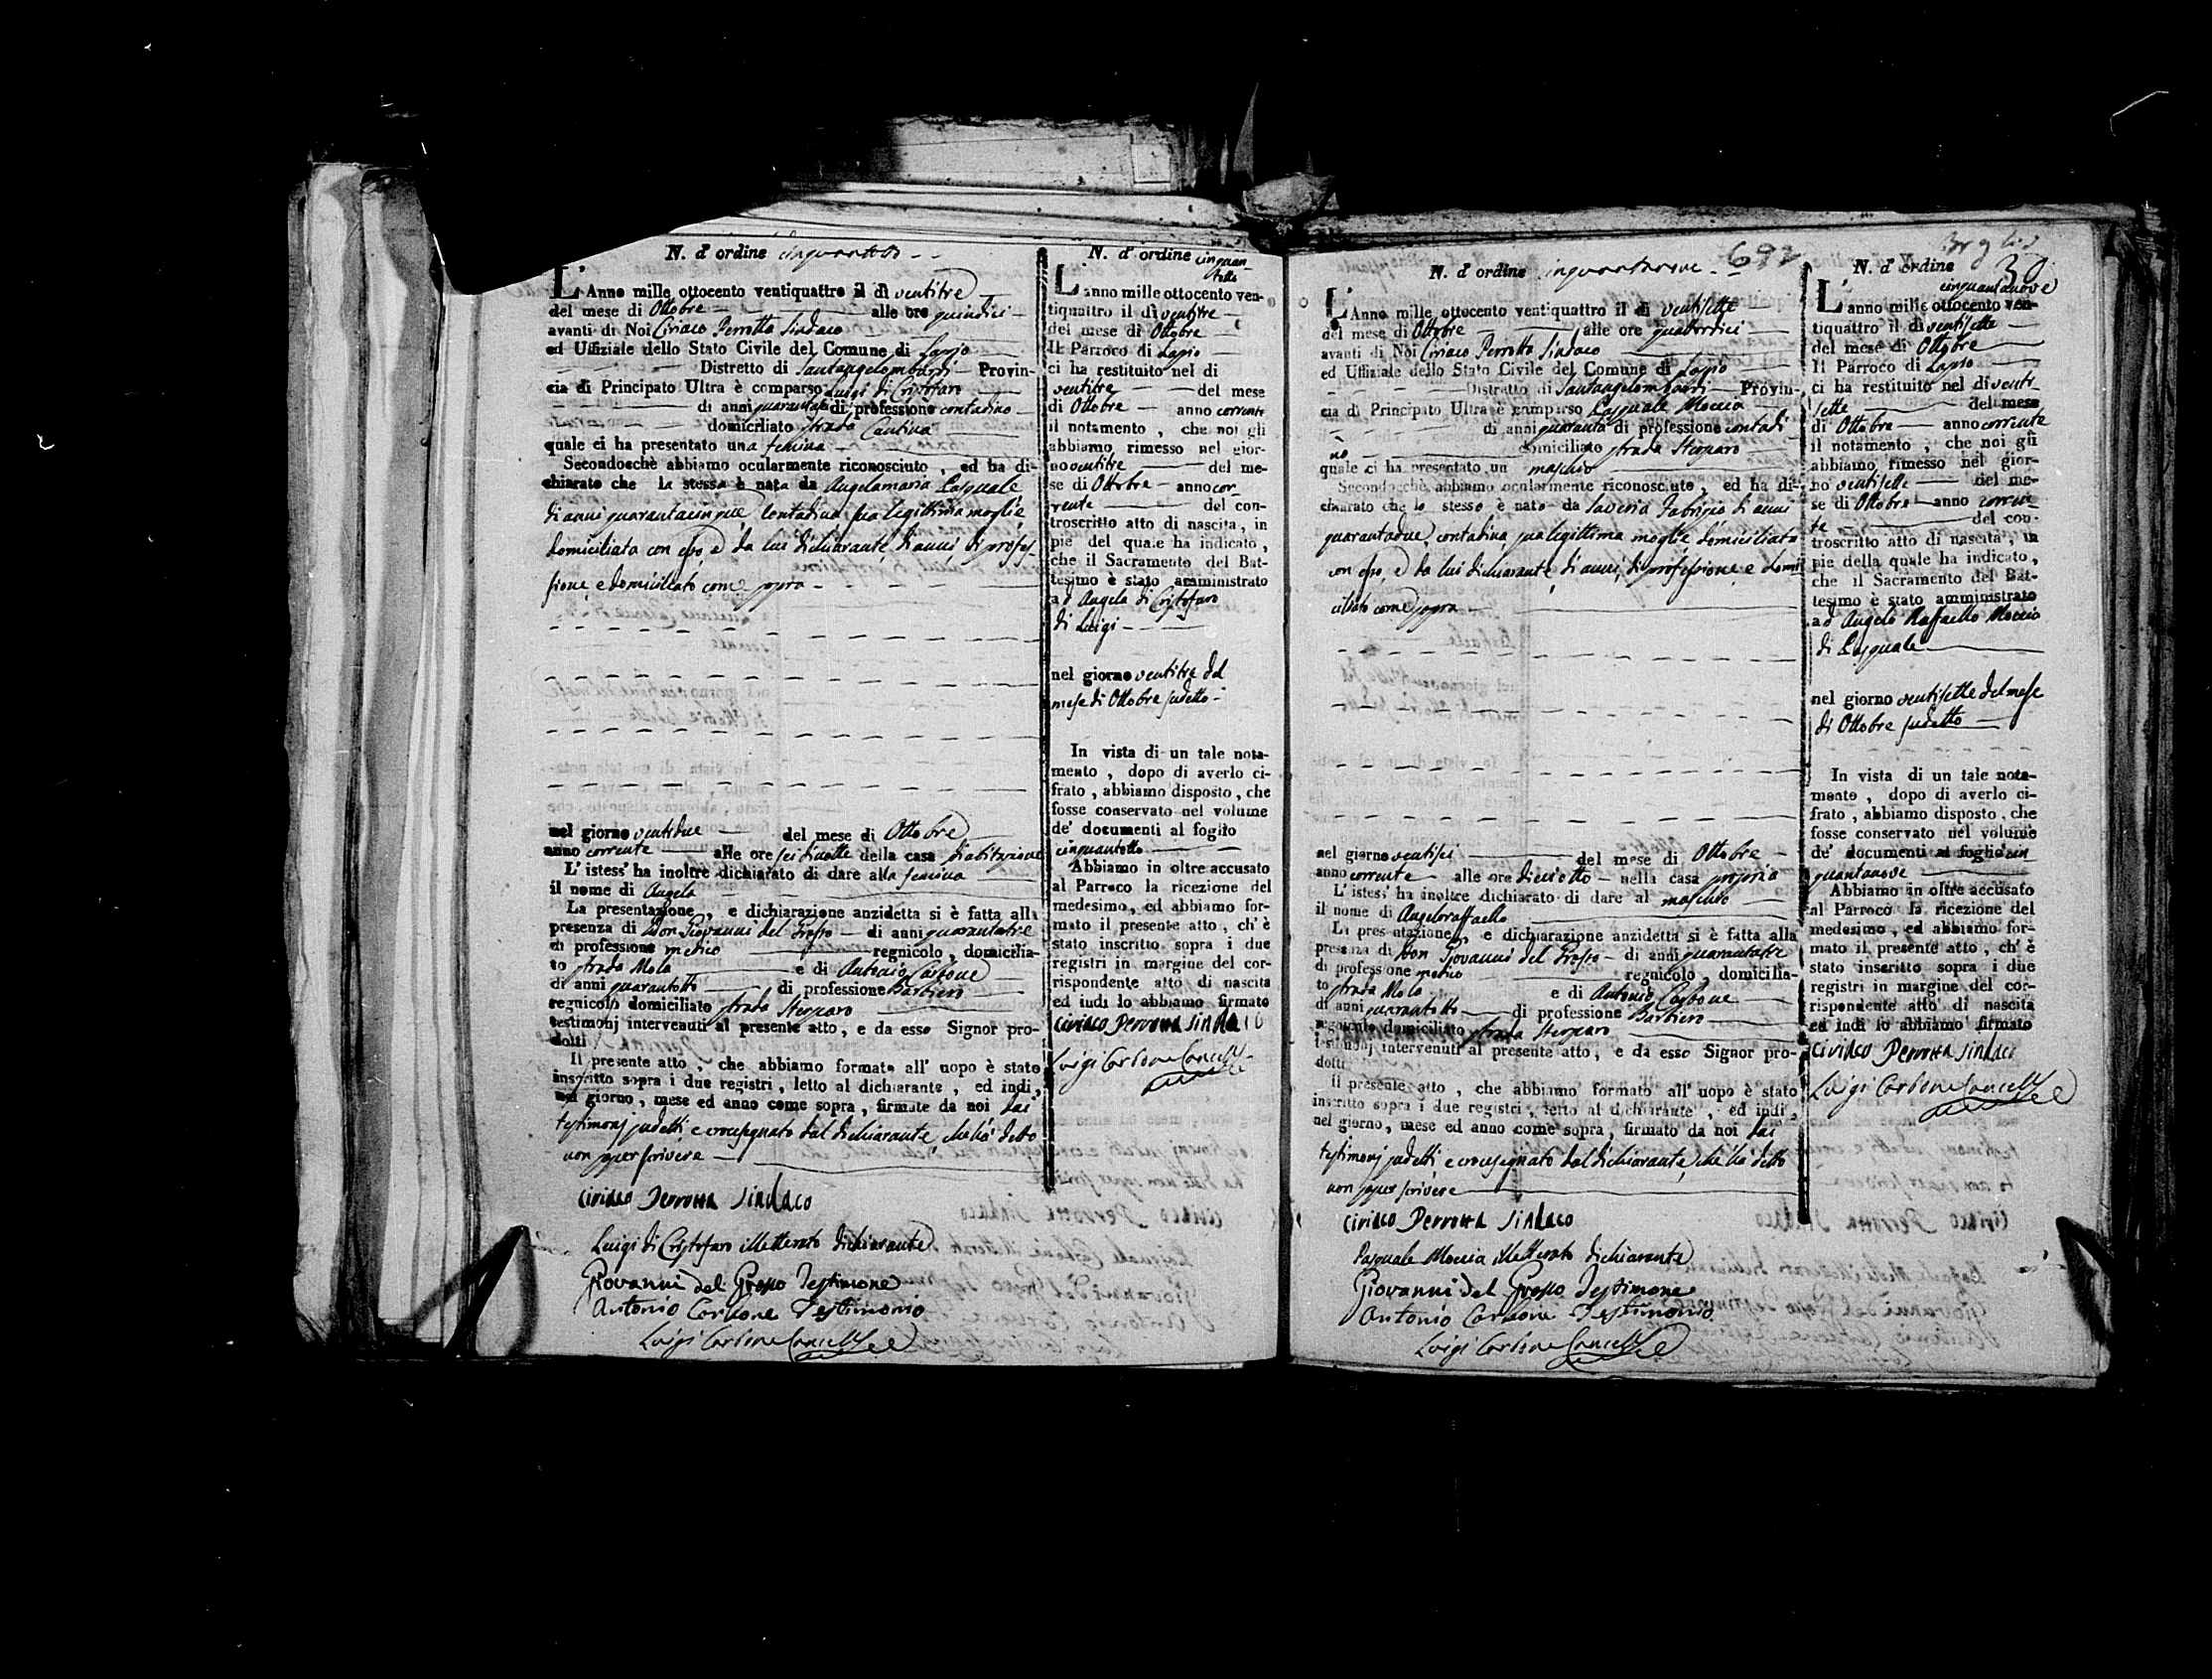 N. d' ordine cinquantotto
L' Anno mille ottocento ventiquattro il dì ventitre
del mese di Ottobre alle ore quindici
avanti di Noi Ciriaco Perrotta Sindaco
ed Uffiziale dello Stato Civile del Comune di Lapio
Distretto di Santangelombardi Provin-
cia di Principato Ultra è comparso Luigi di Cristofaro
di anni quaranta di professione contadino
domiciliato strada Cantina
quale ci ha presentato una femina
Secondocchè abbiamo ocularmente riconosciuto, ed ha di-
chiarato che la stessa è nata da Angelamaria Pasquale
di anni quarantacinque contadina sua legittima moglie
domiciliata con esso, e da lui dichiarante di anni di profes-
sione, e domiciliato come sopra
nel giorno ventidue del mese di Ottobre
anno corrente alle ore sei di notte della casa di abitazione
L' istess' ha inoltre dichiarato di dare alla femina
il nome di Angela
La presentazione, e dichiarazione anzidetta si è fatta alla
presenza di Don Giovanni del Grosso di anni quarantatre
di professione medico regnicolo, domicilia-
to strada Mola e di Antonio Carbone
di anni quarantotto di professione Barbiero
regnicolo domiciliato strada
testimonj intervenuti al presente atto, e da esso Signor pro-
dotti
Il presente atto, che abbiamo formato all' uopo è stato
inscritto sopra i due registri, letto al dichiarante, ed indi,
nel giorno, mese ed anno come sopra, firmato da noi dai
testimonj sudetti e crocesegnato dal dichiarante che ha detto
non saper scrivere
Ciriaco Perrotta Sindaco
Luigi di Cristofaro illetterato dichiarante
Giovanni del Grosso Testimone
Antonio Carbone Testimonio
Luigi Carbone Cancell.
N. d' ordine cinquan-
totto
L' anno mille ottocento ven-
tiquattro il dì ventitre
del mese di Ottobre
Il Parroco di Lapio
ci ha restituito nel di
ventitre del mese
di Ottobre anno corrente
il notamento, che noi gli
abbiamo rimesso nel gior-
no ventitre del me-
se di Ottobre anno cor-
rente del con-
troscritto atto di nascita, in
piè del quale ha indicato,
che il Sacramento del Bat-
tesimo è stato amministrato
ad Angela di Cristofaro
di Luigi
nel giorno ventitre del
mese di Ottobre sudetto
In vista di un tale nota-
mento, dopo di averlo ci-
frato, abbiamo disposto, che
fosse conservato nel volume
de' documenti al foglio
cinquantotto
Abbiamo in oltre accusato
al Parroco la ricezione del
medesimo, ed abbiamo for-
mato il presente atto, ch' è
stato inscritto sopra i due
registri in margine del cor-
rispondente atto di nascita
ed indi lo abbiamo firmato
Ciriaco Perrotta Sindaco
Luigi Carbone Cancell.
N. d' ordine cinquantanove
692
L' Anno mille ottocento ventiquattro il dì ventisette
del mese di Ottobre alle ore quattordici
avanti di Noi Ciriaco Perrotta Sindaco
ed Uffiziale dello Stato Civile del Comune di Lapio
Distretto di Santangelombardi Provin-
cia di Principato Ultra è comparso Pasquale Moccia
di anni quaranta di professione contadi-
no domiciliato strada
quale ci ha presentato un maschio
Secondocchè abbiamo ocularmente riconosciuto, ed ha di-
chiarato che lo stesso è nato da Saveria Fabrizio di anni
quarantadue, contadina sua legittima moglie domiciliata
con esso, e da lui dichiarante, di anni, di professione e domi-
ciliato come sopra
nel giorno ventisei del mese di Ottobre
anno corrente alle ore dieciotto nella casa propria
L' istess' ha inoltre dichiarato di dare al maschio
il nome di Angeloraffaello
La presentazione, e dichiarazione anzidetta si è fatta alla
presenza di Don Giovanni del Grosso di anni quarantatre
di professione medico regnicolo, domicilia-
to strada Mola e di Antonio Carbone
di anni quarantotto di professione Barbiero
regnicolo domiciliato strada
testimonj intervenuti al presente atto, e da esso Signor pro-
dotti
Il presente atto, che abbiamo formato all' uopo è stato
inscritto sopra i due registri, letto al dichiarante, ed indi,
nel giorno, mese ed anno come sopra, firmato da noi dai
testimonj sudetti e crocesegnato dal dichiarante, che ha detto
non saper scrivere
Ciriaco Perrotta Sindaco
Pasquale Moccia illetterato dichiarante
Giovanni del Grosso Testimone
Antonio Carbone Testimonio
Luigi Carbone Cancell.
30
N. d' ordine
cinquantanove
L' anno mille ottocento ven-
tiquattro il dì ventisette
del mese di Ottobre
Il Parroco di Lapio
ci ha restituito nel di venti-
sette del mese
di Ottobre anno corrente
il notamento, che noi gli
abbiamo rimesso nel gior-
no ventisette del me-
se di Ottobre anno corren-
te del con-
troscritto atto di nascita, in
pie della quale ha indicato,
che il Sacramento del Bat-
tesimo è stato amministrato
ad Angelo Raffaello Moccia
di Pasquale
nel giorno ventisette del mese
di Ottobre sudetto
In vista di un tale nota-
mento, dopo di averlo ci-
frato, abbiamo disposto, che
fosse conservato nel volume
de' documenti al foglio cin-
quantanove
Abbiamo in oltre accusato
al Parroco la ricezione del
medesimo, ed abbiamo for-
mato il presente atto, ch' è
stato inscritto sopra i due
registri in margine del cor-
rispondente atto di nascita
ed indi lo abbiamo firmato
Ciriaco Perrotta Sindaco
Luigi Carbone Cancell.